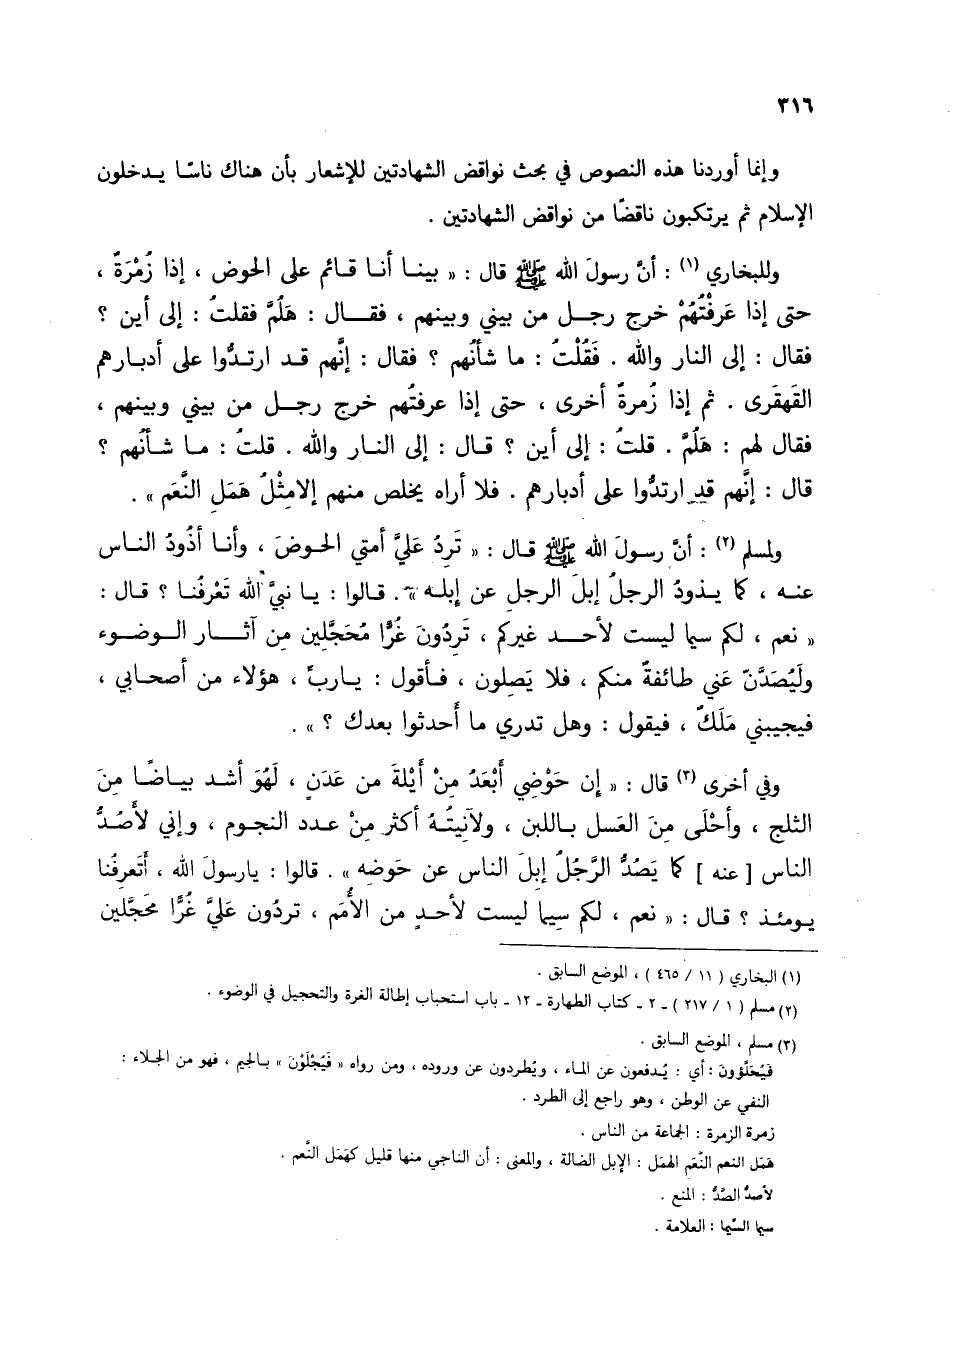 ٣١٦
وإنما أوردنا هذه النصوص في بحث نواقض الشهادتين للإشعار بأن هناك ناسًا يدخلون
الإسلام ثم يرتكبون ناقضًا من نواقض الشهادتين .
وللبخاري (١) : أنَّ رسولَ الله ﷺ قال : « بينا أنا قائم على الحوض ، إذا زُمْرَةٌ ،
حتى إذا عَرفْتُهُمْ خرج رجل من بيني وبينهم ، فقال : هَلُمَّ فقلتُ : إلى أين ؟
فقال : إلى النار والله . فَقُلْتُ : ما شأنُهم ؟ فقال : إنَّهم قد ارتدُّوا على أدبارهم
القَهقَرى . ثم إذا زُمرةٌ أخرى ، حتى إذا عرفتُهم خرج رجل من بيني وبينهم ،
فقال لهم : هَلُمَّ . قلتُ : إلى أين ؟ قال : إلى النار والله . قلتُ : ما شأنُهم ؟
قال : إنَّهم قد ارتدُّوا على أدبارهم . فلا أراه يخلص منهم إلا مِثْلُ هَمَلِ النَّعَم » .
ولمسلم (٢) : أنَّ رسولَ الله ﷺ قال : « تَرِدُ عَليَّ أمتي الحوضَ ، وأنا أذُودُ الناس
عنه ، كما يذودُ الرجلُ إبلَ الرجلِ عن إبله » . قالوا : يا نبيَّ الله تَعْرفُنا ؟ قال :
« نعم ، لكم سيما ليست لأحد غيركم ، تَردُونَ غُرًّا مُحَجَّلين مِن آثار الوضوء
ولَيُصَدَّنّ عَني طائفةٌ منكم ، فلا يَصِلون ، فأقول : يارب ، هؤلاء من أصحابي ،
فيجيبني مَلَكٌ ، فيقول : وهل تدري ما أحدثوا بعدك ؟ » .
وفي أخرى (٣) قال : « إن حَوْضِي أَبْعَدُ مِنْ أَيْلةَ من عَدَنٍ ، لَهُوَ أشد بياضًا مِنَ
الثلج ، وأحْلَى مِنَ العَسل باللبن ، ولآنِيتُهُ أكثر مِنْ عدد النجوم ، وإني لأَصُدُّ
الناس [ عنه ] كما يَصُدُّ الرَّجُلُ إبلَ الناس عن حَوضه » . قالوا : يارسولَ الله ، أتَعرِفُنا
يومئذ ؟ قال : « نعم ، لكم سِيما ليست لأحدٍ من الأُمَم ، تردُون عَليَّ غُرًّا محَجَّلين
(١) البخاري ( ١١ / ٤٦٥ ) ، الموضع السابق .
(٢) مسلم ( ١ / ٢١٧ ) ـ ٢ ـ كتاب الطهارة ـ ١٢ ـ باب استحباب إطالة الغرة والتحجيل في الوضوء .
(٣) مسلم ، الموضع السابق .
فيُحَلَّؤون : أي : يُدفعون عن الماء ، ويُطردون عن وروده ، ومن رواه « فَيُجْلَوْنَ » بالجيم ، فهو من الجلاء :
النفي عن الوطن ، وهو راجع إلى الطرد .
زمرة الزمرة : الجماعة من الناس .
هَمَل النعم النَّعَم الهمَل : الإبل الضالة ، والمعنى : أن الناجي منها قليل كهَمَل النَّعم .
لأصدُّ الصَّدُّ : المنع .
سيما السِّيما : العلامة .